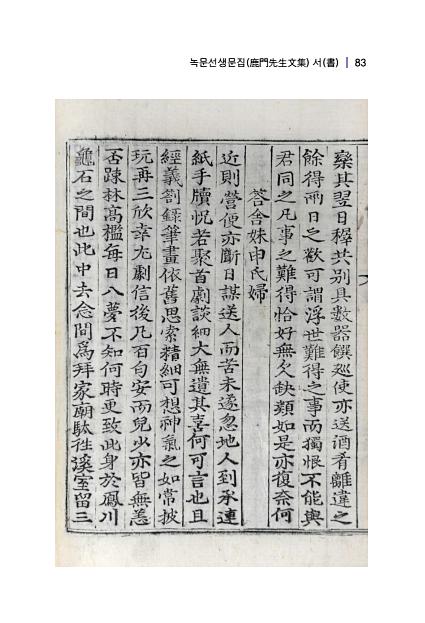 녹문선생문집(鹿門先生文集) 서(書) | 83
粲其翌日稺共別具數器饌廵使亦送酒肴離違之
餘得兩日之歡可謂浮世難得之事而獨恨不能與
君同之凡事之難得恰好無欠缺類如是亦復奈何
答舍妹申氏婦
近則營便亦斷日謀送人而苦未遂忽地人到承連
紙手牘怳若聚首劇談細大無遺其喜何可言也且
經義劄錄筆畫依舊思索精細可想神氣之如常披
玩再三欣幸尤劇信後凡百句安而兒少亦皆無恙
否踈林高檻每日入夢不知何時更致此身於鳳川
龜石之間也此中去念間爲拜家廟馱徃溪室留三